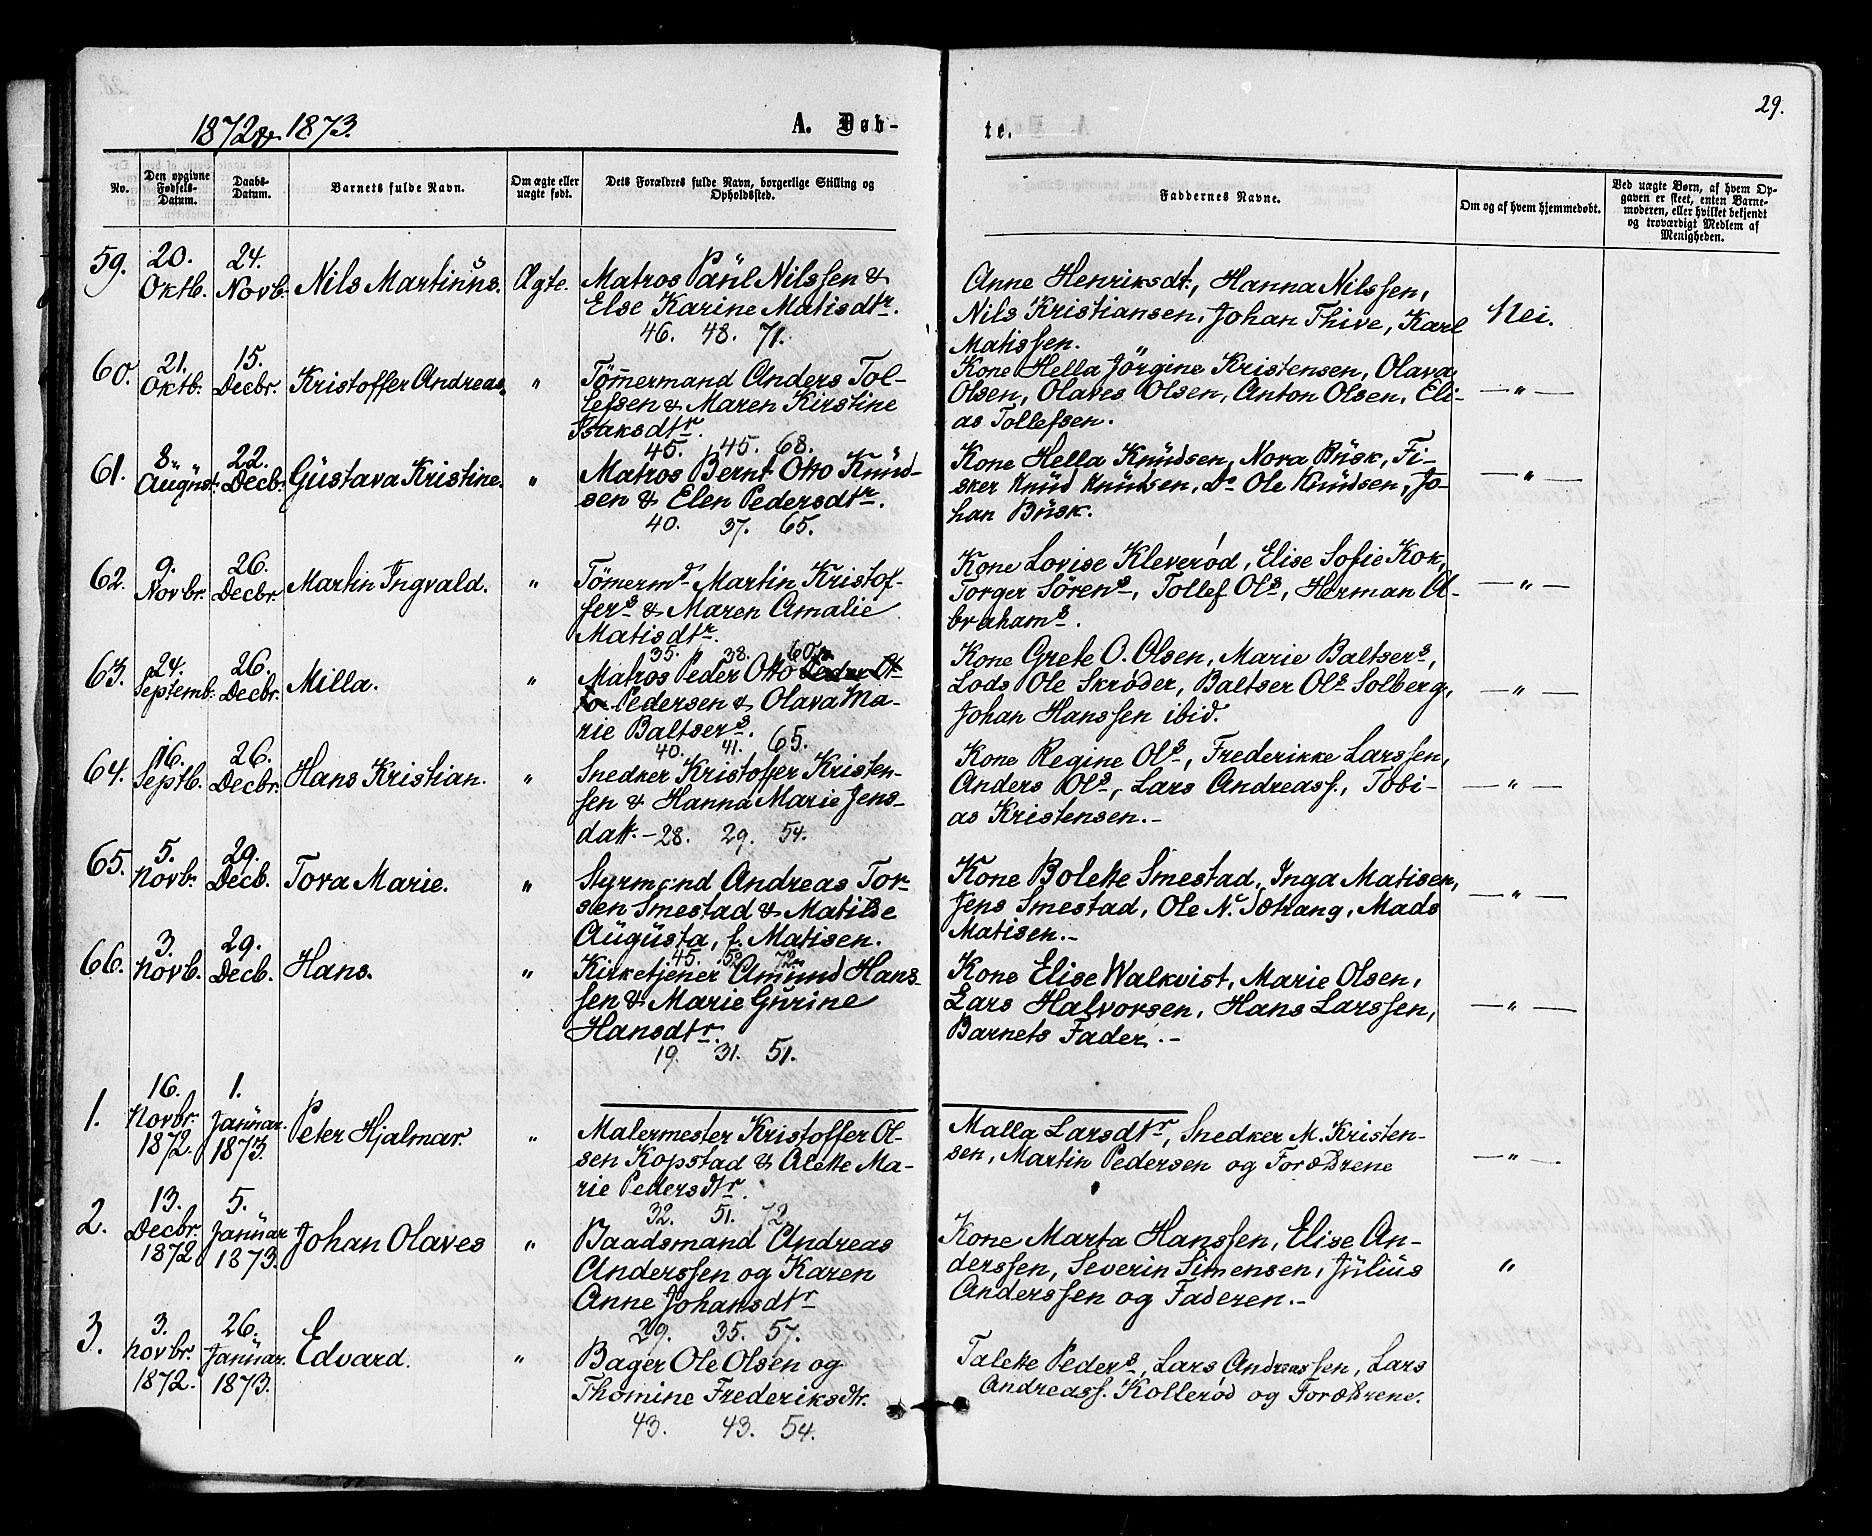 29.
1872 & 1873.
A. Døb-
te.
No.
Den opgivne
Fødsels-
Datum.
Daabs-
Datum.
Barnets fulde Navn.
Om ægte eller
uægte født.
Dets Forældres fulde Navn, borgerlige Stilling og
Opholdssted.
Faddernes Navne.
Om og af hvem hjemmedøbt.
Ved uægte Børn, af hvem Op-
gaven er skeet, enten Barne-
moderen, eller hvilket bekjendt
og troværdigt Medlem af
Menigheden.
59.
20.
Oktb.
24.
Novb.
Nils Martinus.
Ægte.
Matros Paul Nilssen &
Else Karine Matisdtr.
46. 48. 71.
Anne Henriksdt., Hanna Nilssen,
Nils Kristiansen, Johan Thive, Karl
Matissen.
Nei.
60.
21.
Oktb.
15.
Decbr.
Kristoffer Andreas.
"
Tömmermand Anders Tol-
lefsen & Maren Kirstine
Isaksdtr.
45. 45. 68.
Kone Hella Jörgine Kristensen, Olava
Olsen, Olaves Olsen, Anton Olsen, Eli-
as Tollefsen.
— " —
61.
8.
August.
22.
Decbr.
Gustava Kristine.
"
Matros Bernt Otto Knud-
sen & Elen Pedersdtr.
40. 37. 65.
Kone Hella Knudsen, Nora Busk, Fi-
sker Knud Knutsen, Do Ole Knudsen, Jo-
han Busk.
— " —
62.
9.
Novbr.
26.
Decbr.
Martin Ingvald.
"
Tömermd. Martin Kristof-
fers. & Maren Amalie
Matisdtr.
35. 38. 60.
Kone Lovise Kleverød, Elise Sofie Kok,
Torger Sörens., Tollef Ols., Herman A-
brahams.
— " —
63.
24.
Septemb.
26.
Decbr.
Milla.
"
Matros Peder Otto Peder Ot-
to Pedersen & Olava Ma-
rie Baltsers.
40. 41. 65.
Kone Grete O. Olsen, Marie Baltsers.,
Lods Ole Skrøder, Baltser Ols. Solberg,
Johan Hanssen ibid.
— " —
64.
16.
Septb.
26.
Decbr.
Hans Kristian.
"
Snedker Kristoffer Kristen-
sen & Hanna Marie Jens-
datt. — 28. 29. 54.
Kone Regine Ols., Frederikke Larssen,
Anders Ols., Lars Andreass., Tobi-
as Kristensen. -
— " —
65.
5.
Novb.
29.
Decb.
Tora Marie.
"
Styrmand Andreas Tor-
sen Smestad & Matilde
Augusta, f. Matisen.
45. 52. 72.
Kone Bolette Smestad, Inga Matisen,
Jens Smestad, Ole N. Sætrang, Mads
Matisen. -
— " —
66.
3.
Novb.
29.
Decb.
Hans.
"
Kirketjener Amund Hans-
sen & Marie Gurine
Hansdtr.
19. 31. 51.
Kone Elise Walkvist, Marie Olsen,
Lars Halvorsen, Hans Larssen,
Barnets Fader. -
— " —
1.
16.
Novbr.
1872.
1.
Januar.
1873.
Peter Hjalmar.
"
Malermester Kristoffer Ol-
sen Kopstad & Alette Ma-
rie Pedersdtr.
32. 51. 72.
Malla Larsdtr., Snedker M. Kristen-
sen, Martin Pedersen og Forældrene
— " —
2.
13.
Decbr.
1872
5.
Januar
1873.
Johan Olaves
"
Baadsmand Andreas
Anderssen og Karen
Anne Johansdtr
29. 35. 57.
Kone Marta Hanssen, Elise An-
derssen, Severin Simensen, Julius
Anderssen og Faderen. -
"
3.
3.
Novbr.
1872.
26.
Januar.
1873.
Edvard.
"
Bager Ole Olsen og
Thomine Frederiksdtr.
43. 43. 54.
Talette Peders., Lars Andreassen, Lars
Andreass. Kollerød og Forældrene.